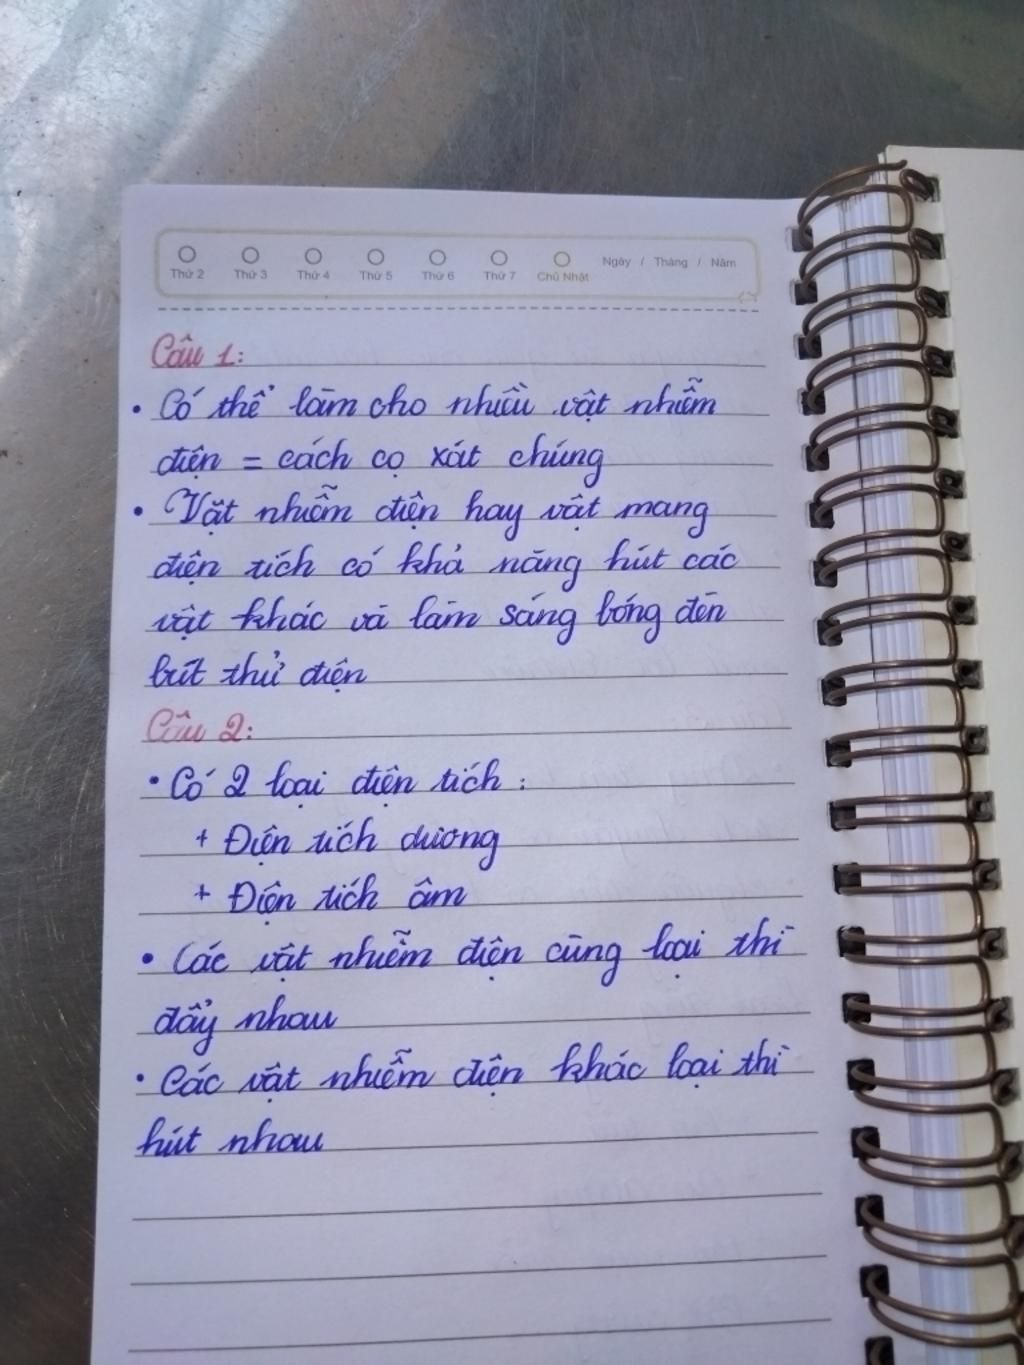 Thứ 2 Thứ 3 Thứ 4 Thứ 5 Thứ 6 Thứ 7 Chủ Nhật Ngày / Tháng / Năm
Câu 1:
• Có thể làm cho nhiều vật nhiễm
điện = cách cọ xát chúng
• Vật nhiễm điện hay vật mang
điện tích có khả năng hút các
vật khác và làm sáng bóng đèn
bút thử điện
Câu 2:
• Có 2 loại điện tích :
+ Điện tích dương
+ Điện tích âm
• Các vật nhiễm điện cùng loại thì
đẩy nhau
• Các vật nhiễm điện khác loại thì
hút nhau